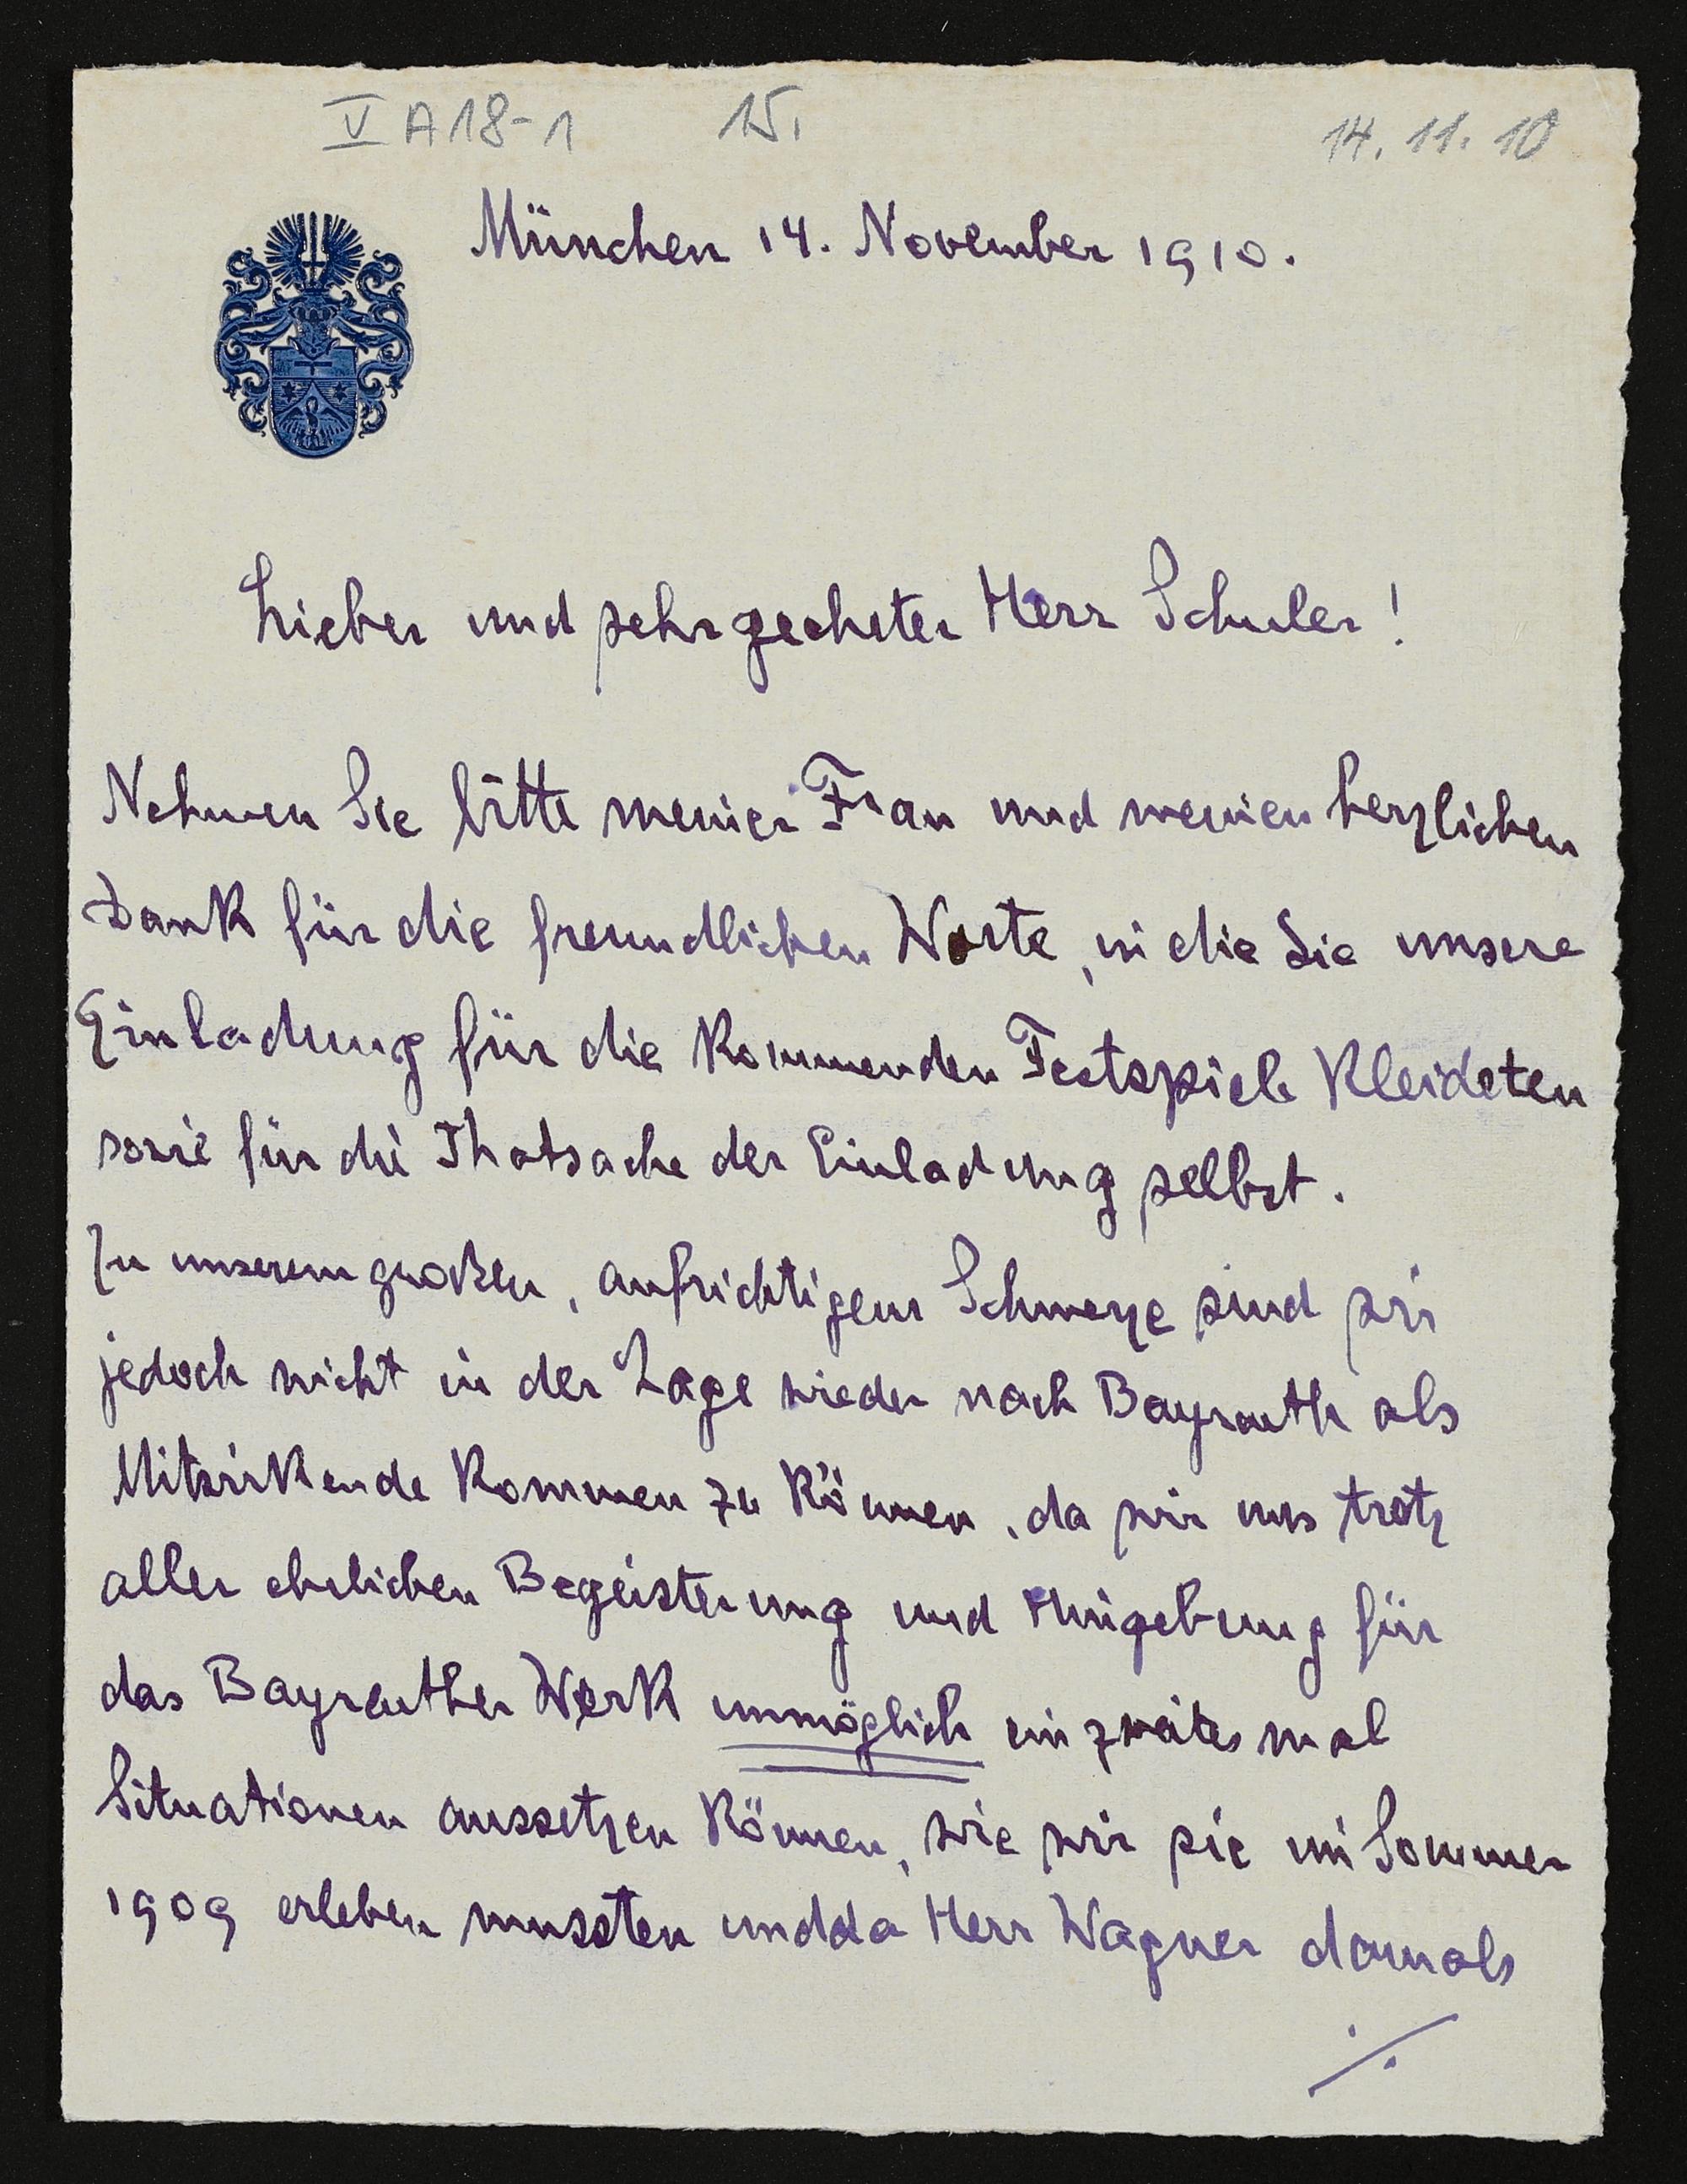 V A 18-1 15. 14.11.10
München 14. November 1910.
Lieber und sehrgeehrter Herr Schuler!
Nehmen Sie bitte meiner Frau und meinen herzlichen
Dank für die freundlichen Worte, in die Sie unsere
Einladung für die kommenden Festspiele kleideten
sowie für die Thatsache der Einladung selbst.
Zu unserem großen, aufrichtigem Schmerze sind wir
jedoch nicht in der Lage wieder nach Bayreuth als
Mitwirkende kommen zu können, da wir uns trotz
aller ehrlichen Begeisterung und Hingebung für
das Bayreuther Werk unmöglich ein zweites mal
Situationen aussetzen können, wie wir sie im Sommer
1909 erleben mussten und da Herr Wagner damals
./.